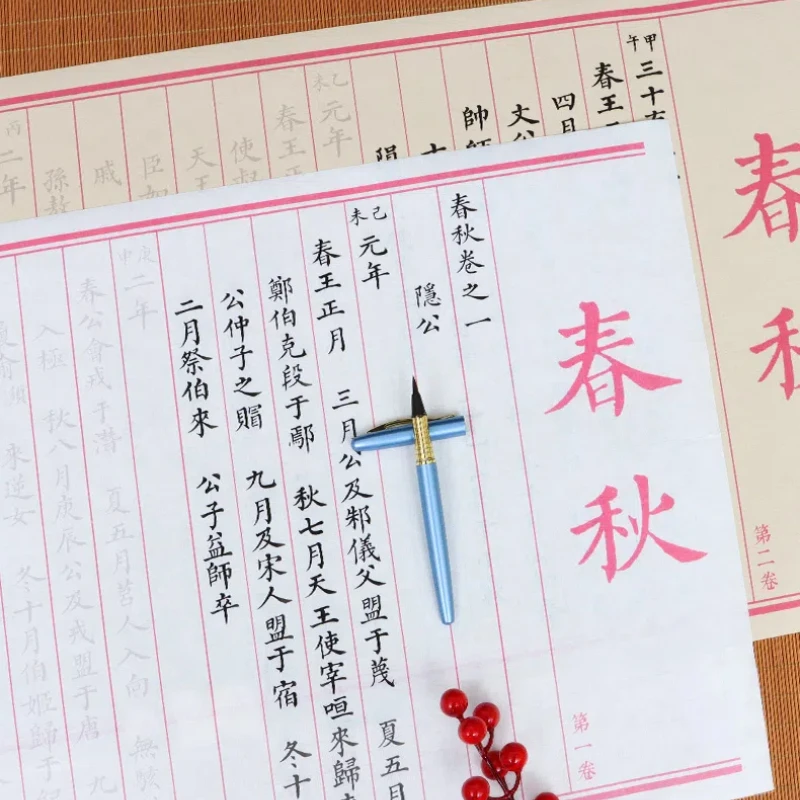 春秋
第二卷
甲午 三十有
春王
四月
公
帥師
隕
乙未 元年
春王正
使
天王
臣如
戚
孫敖
丙
二年
春秋
第一卷
春秋卷之一
隱公
己未 元年
春王正月 三月公及邾儀父盟于蔑 夏五月
鄭伯克段于鄢 秋七月天王使宰咺來歸
公仲子之賵 九月及宋人盟于宿 冬十
二月祭伯來 公子益師卒
庚申 二年
春公會戎于潛 夏五月莒人入向 無駭
入極 秋八月庚辰公及戎盟于唐 九
來逆女 冬十月伯姬歸于紀